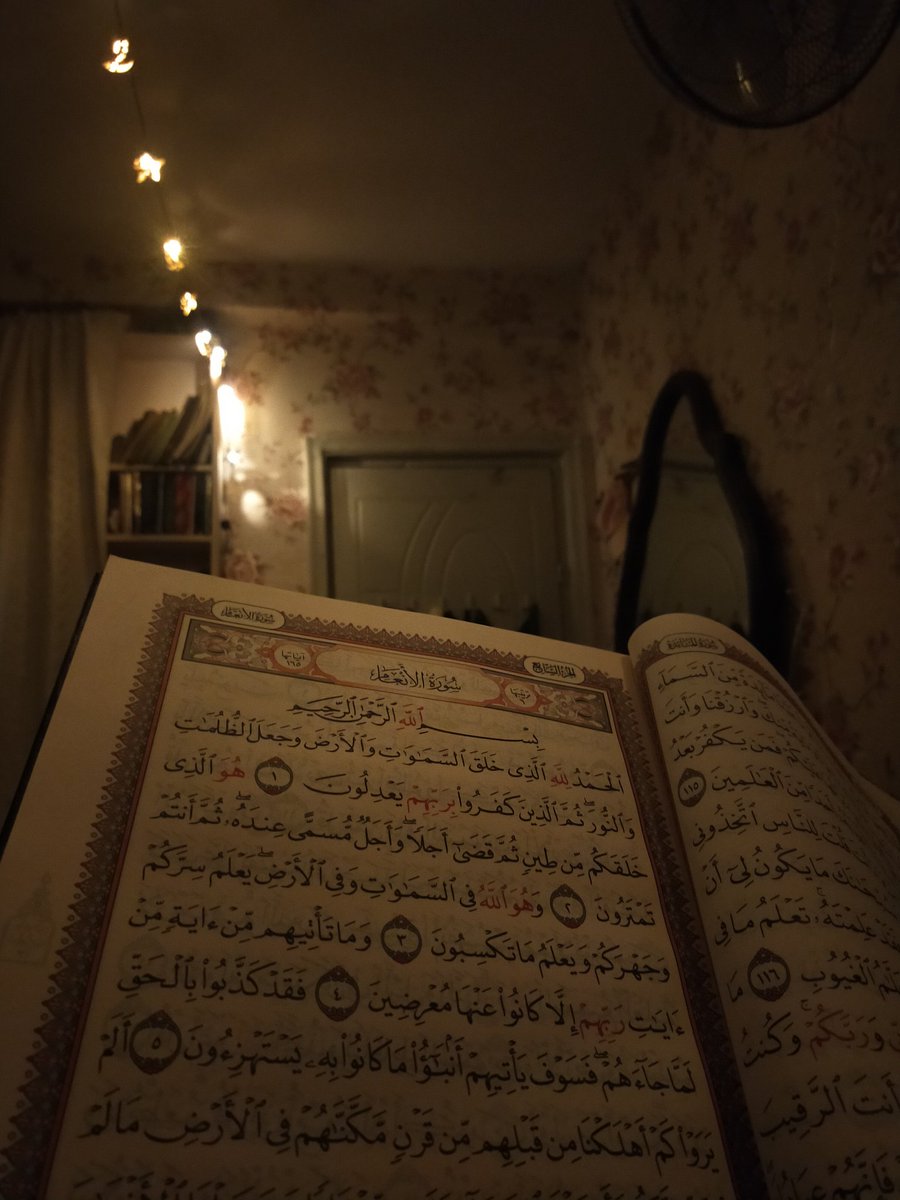 سُورَةُ المَائِدَةِ
مِّنَ ٱلسَّمَآءِ
وَٱرۡزُقۡنَا وَأَنتَ
فَمَن يَكۡفُرۡ بَعۡدُ
مِّنَ ٱلۡعَٰلَمِينَ ١١٥
لِلنَّاسِ ٱتَّخِذُونِي
مَا يَكُونُ لِيٓ أَنۡ
عَلِمۡتَهُۥۚ تَعۡلَمُ مَا فِي
ٱلۡغُيُوبِ ١١٦ مَا
وَرَبَّكُمۡۚ وَكُنتُ
أَنتَ ٱلرَّقِيبَ
الجزء السابع سُورَةُ الأَنۡعَامِ
ترتيبها ٦ سُورَةُ الأَنۡعَامِ آياتها ١٦٥
بِسۡمِ ٱللَّهِ ٱلرَّحۡمَٰنِ ٱلرَّحِيمِ
ٱلۡحَمۡدُ لِلَّهِ ٱلَّذِي خَلَقَ ٱلسَّمَٰوَٰتِ وَٱلۡأَرۡضَ وَجَعَلَ ٱلظُّلُمَٰتِ
وَٱلنُّورَۖ ثُمَّ ٱلَّذِينَ كَفَرُواْ بِرَبِّهِمۡ يَعۡدِلُونَ ١ هُوَ ٱلَّذِي
خَلَقَكُم مِّن طِينٖ ثُمَّ قَضَىٰٓ أَجَلٗاۖ وَأَجَلٞ مُّسَمًّى عِندَهُۥۖ ثُمَّ أَنتُمۡ
تَمۡتَرُونَ ٢ وَهُوَ ٱللَّهُ فِي ٱلسَّمَٰوَٰتِ وَفِي ٱلۡأَرۡضِ يَعۡلَمُ سِرَّكُمۡ
وَجَهۡرَكُمۡ وَيَعۡلَمُ مَا تَكۡسِبُونَ ٣ وَمَا تَأۡتِيهِم مِّنۡ ءَايَةٖ مِّنۡ
ءَايَٰتِ رَبِّهِمۡ إِلَّا كَانُواْ عَنۡهَا مُعۡرِضِينَ ٤ فَقَدۡ كَذَّبُواْ بِٱلۡحَقِّ
لَمَّا جَآءَهُمۡ فَسَوۡفَ يَأۡتِيهِمۡ أَنۢبَٰٓؤُاْ مَا كَانُواْ بِهِۦ يَسۡتَهۡزِءُونَ ٥ أَلَمۡ
يَرَوۡاْ كَمۡ أَهۡلَكۡنَا مِن قَبۡلِهِم مِّن قَرۡنٖ مَّكَّنَّٰهُمۡ فِي ٱلۡأَرۡضِ مَا لَمۡ